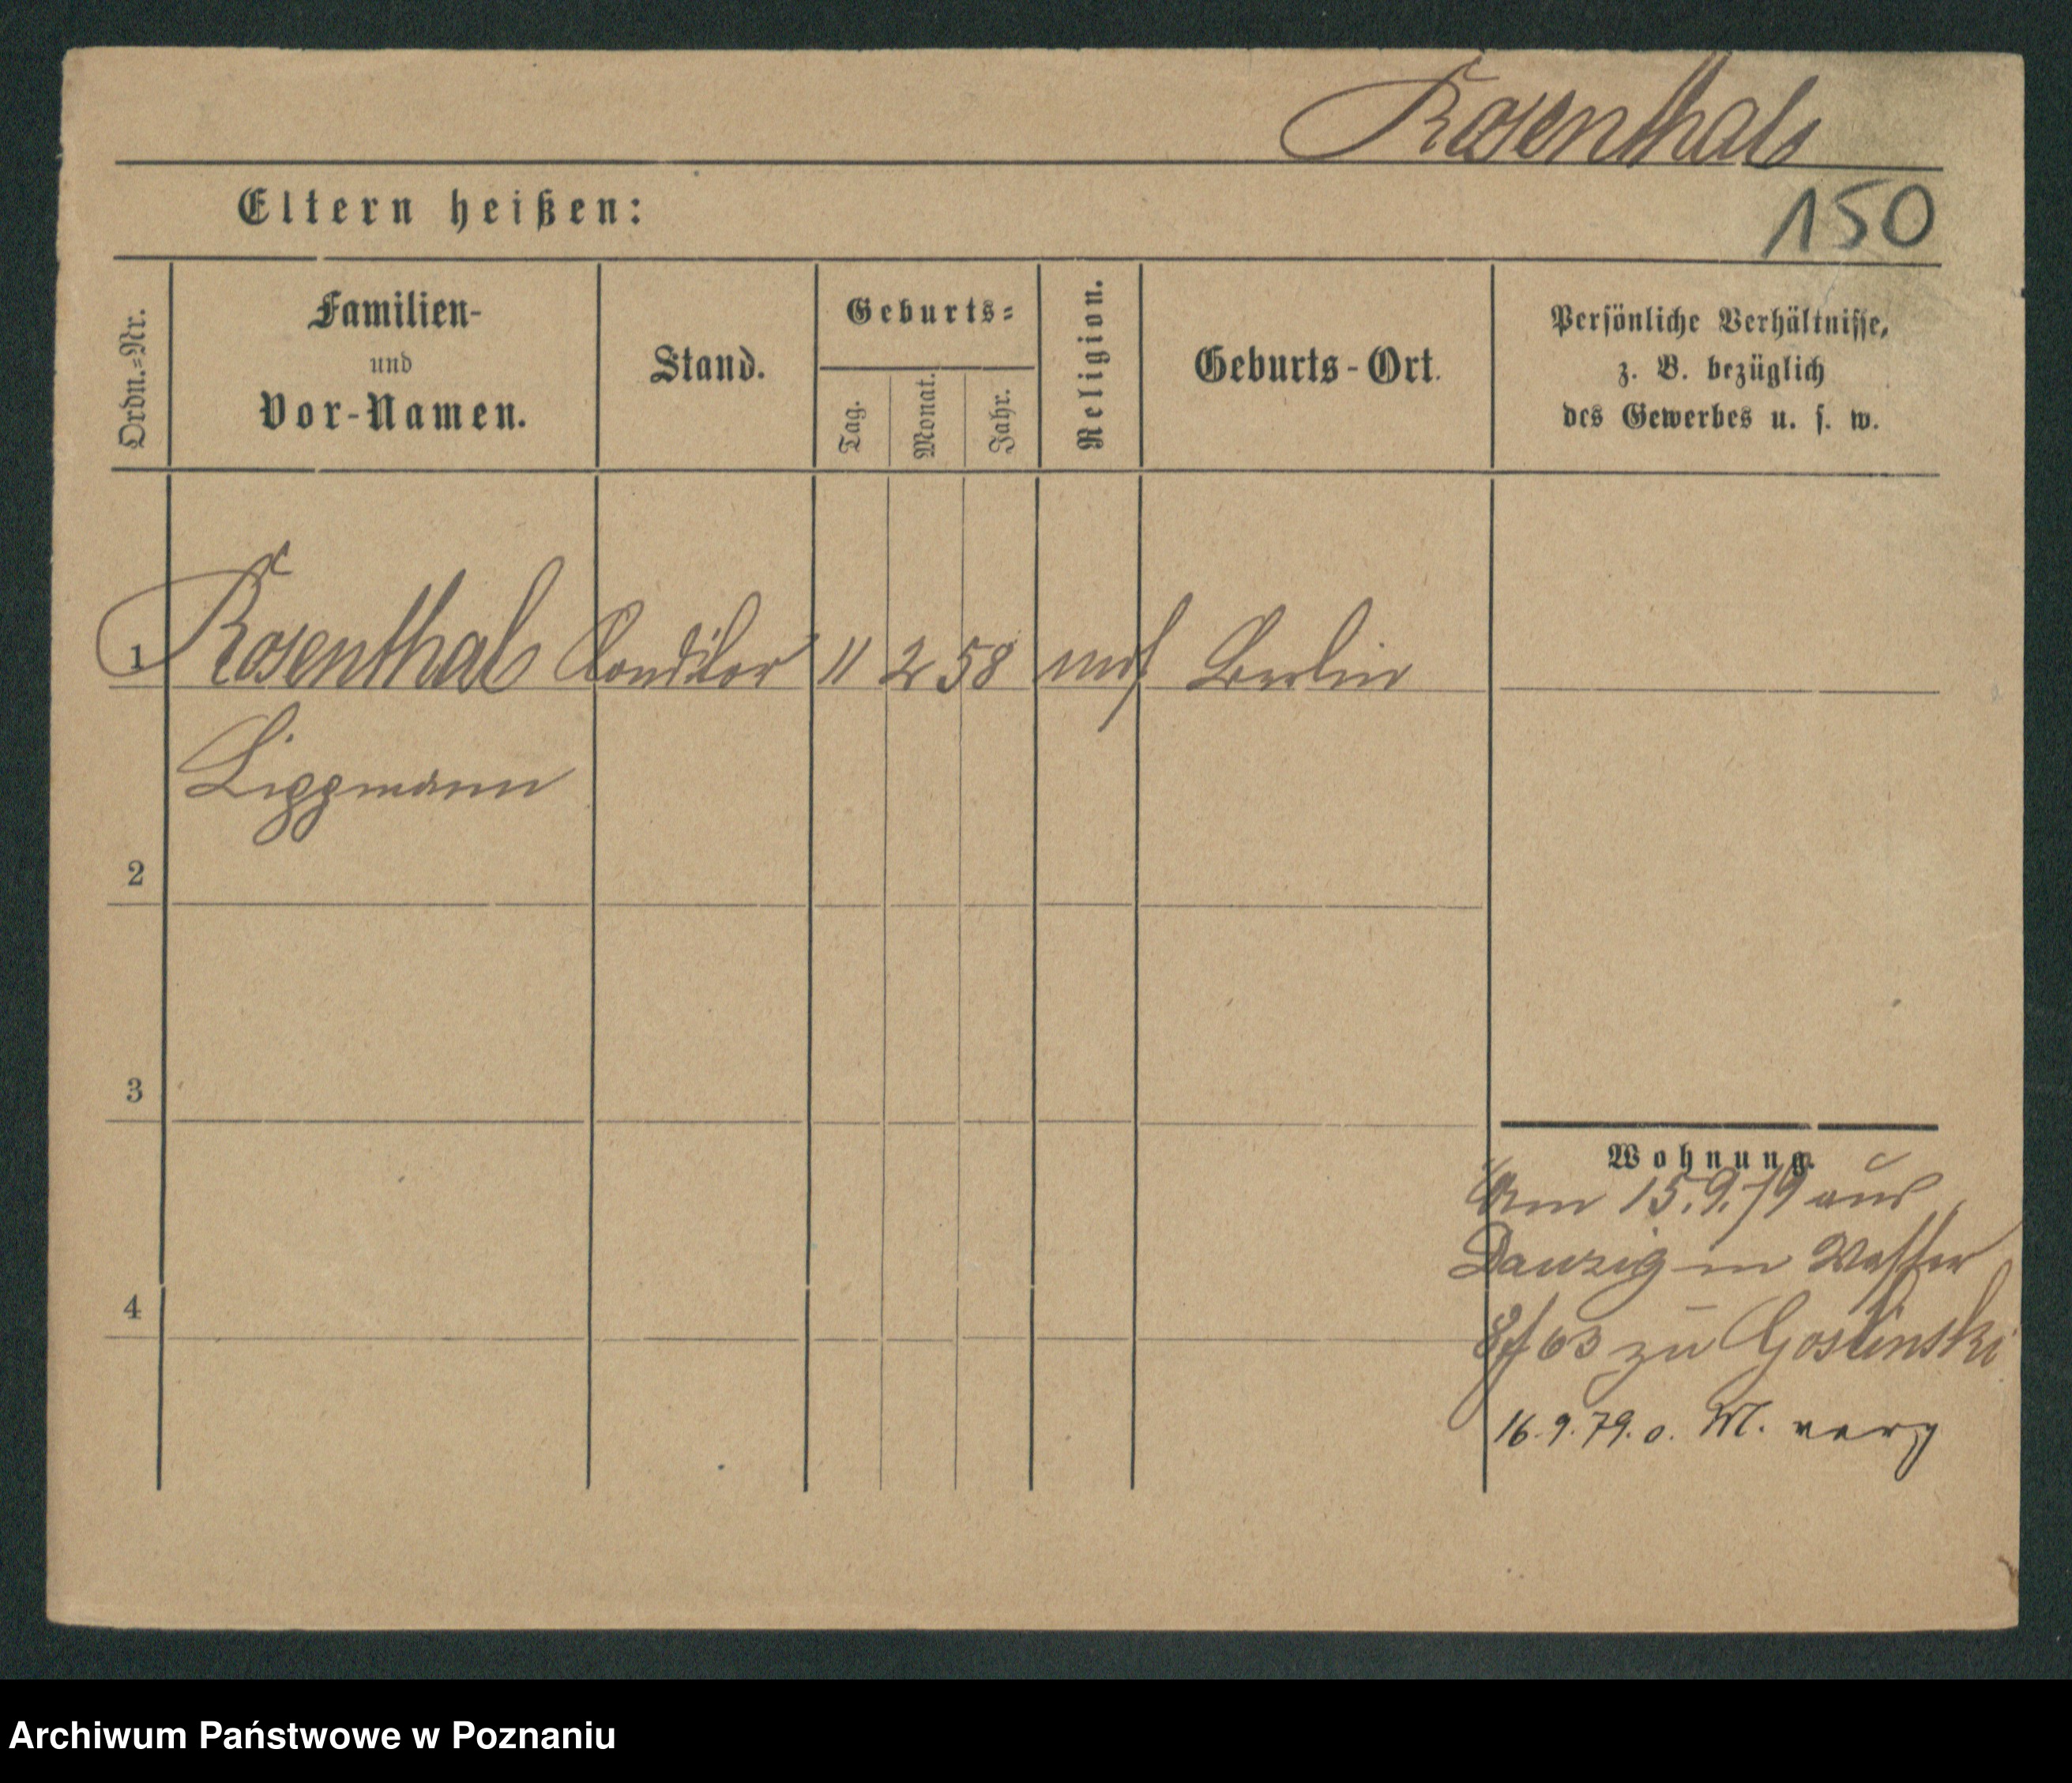 Rosenthal
Eltern heißen:
150
Ordn.-Nr.
Familien-
und
Vor-Namen.
Stand.
Geburts-
Tag.
Monat.
Jahr.
Religion.
Geburts-Ort.
Persönliche Verhältnisse,
z. B. bezüglich
des Gewerbes u. s. w.
1 Rosenthal Conditor 11 2 58 mos Berlin
Lippmann
2
3
4
Wohnung.
Am 15.9.79 aus
Danzig in
63 zu Goslinski
16.9.79. o. M. verz
Archiwum Państwowe w Poznaniu